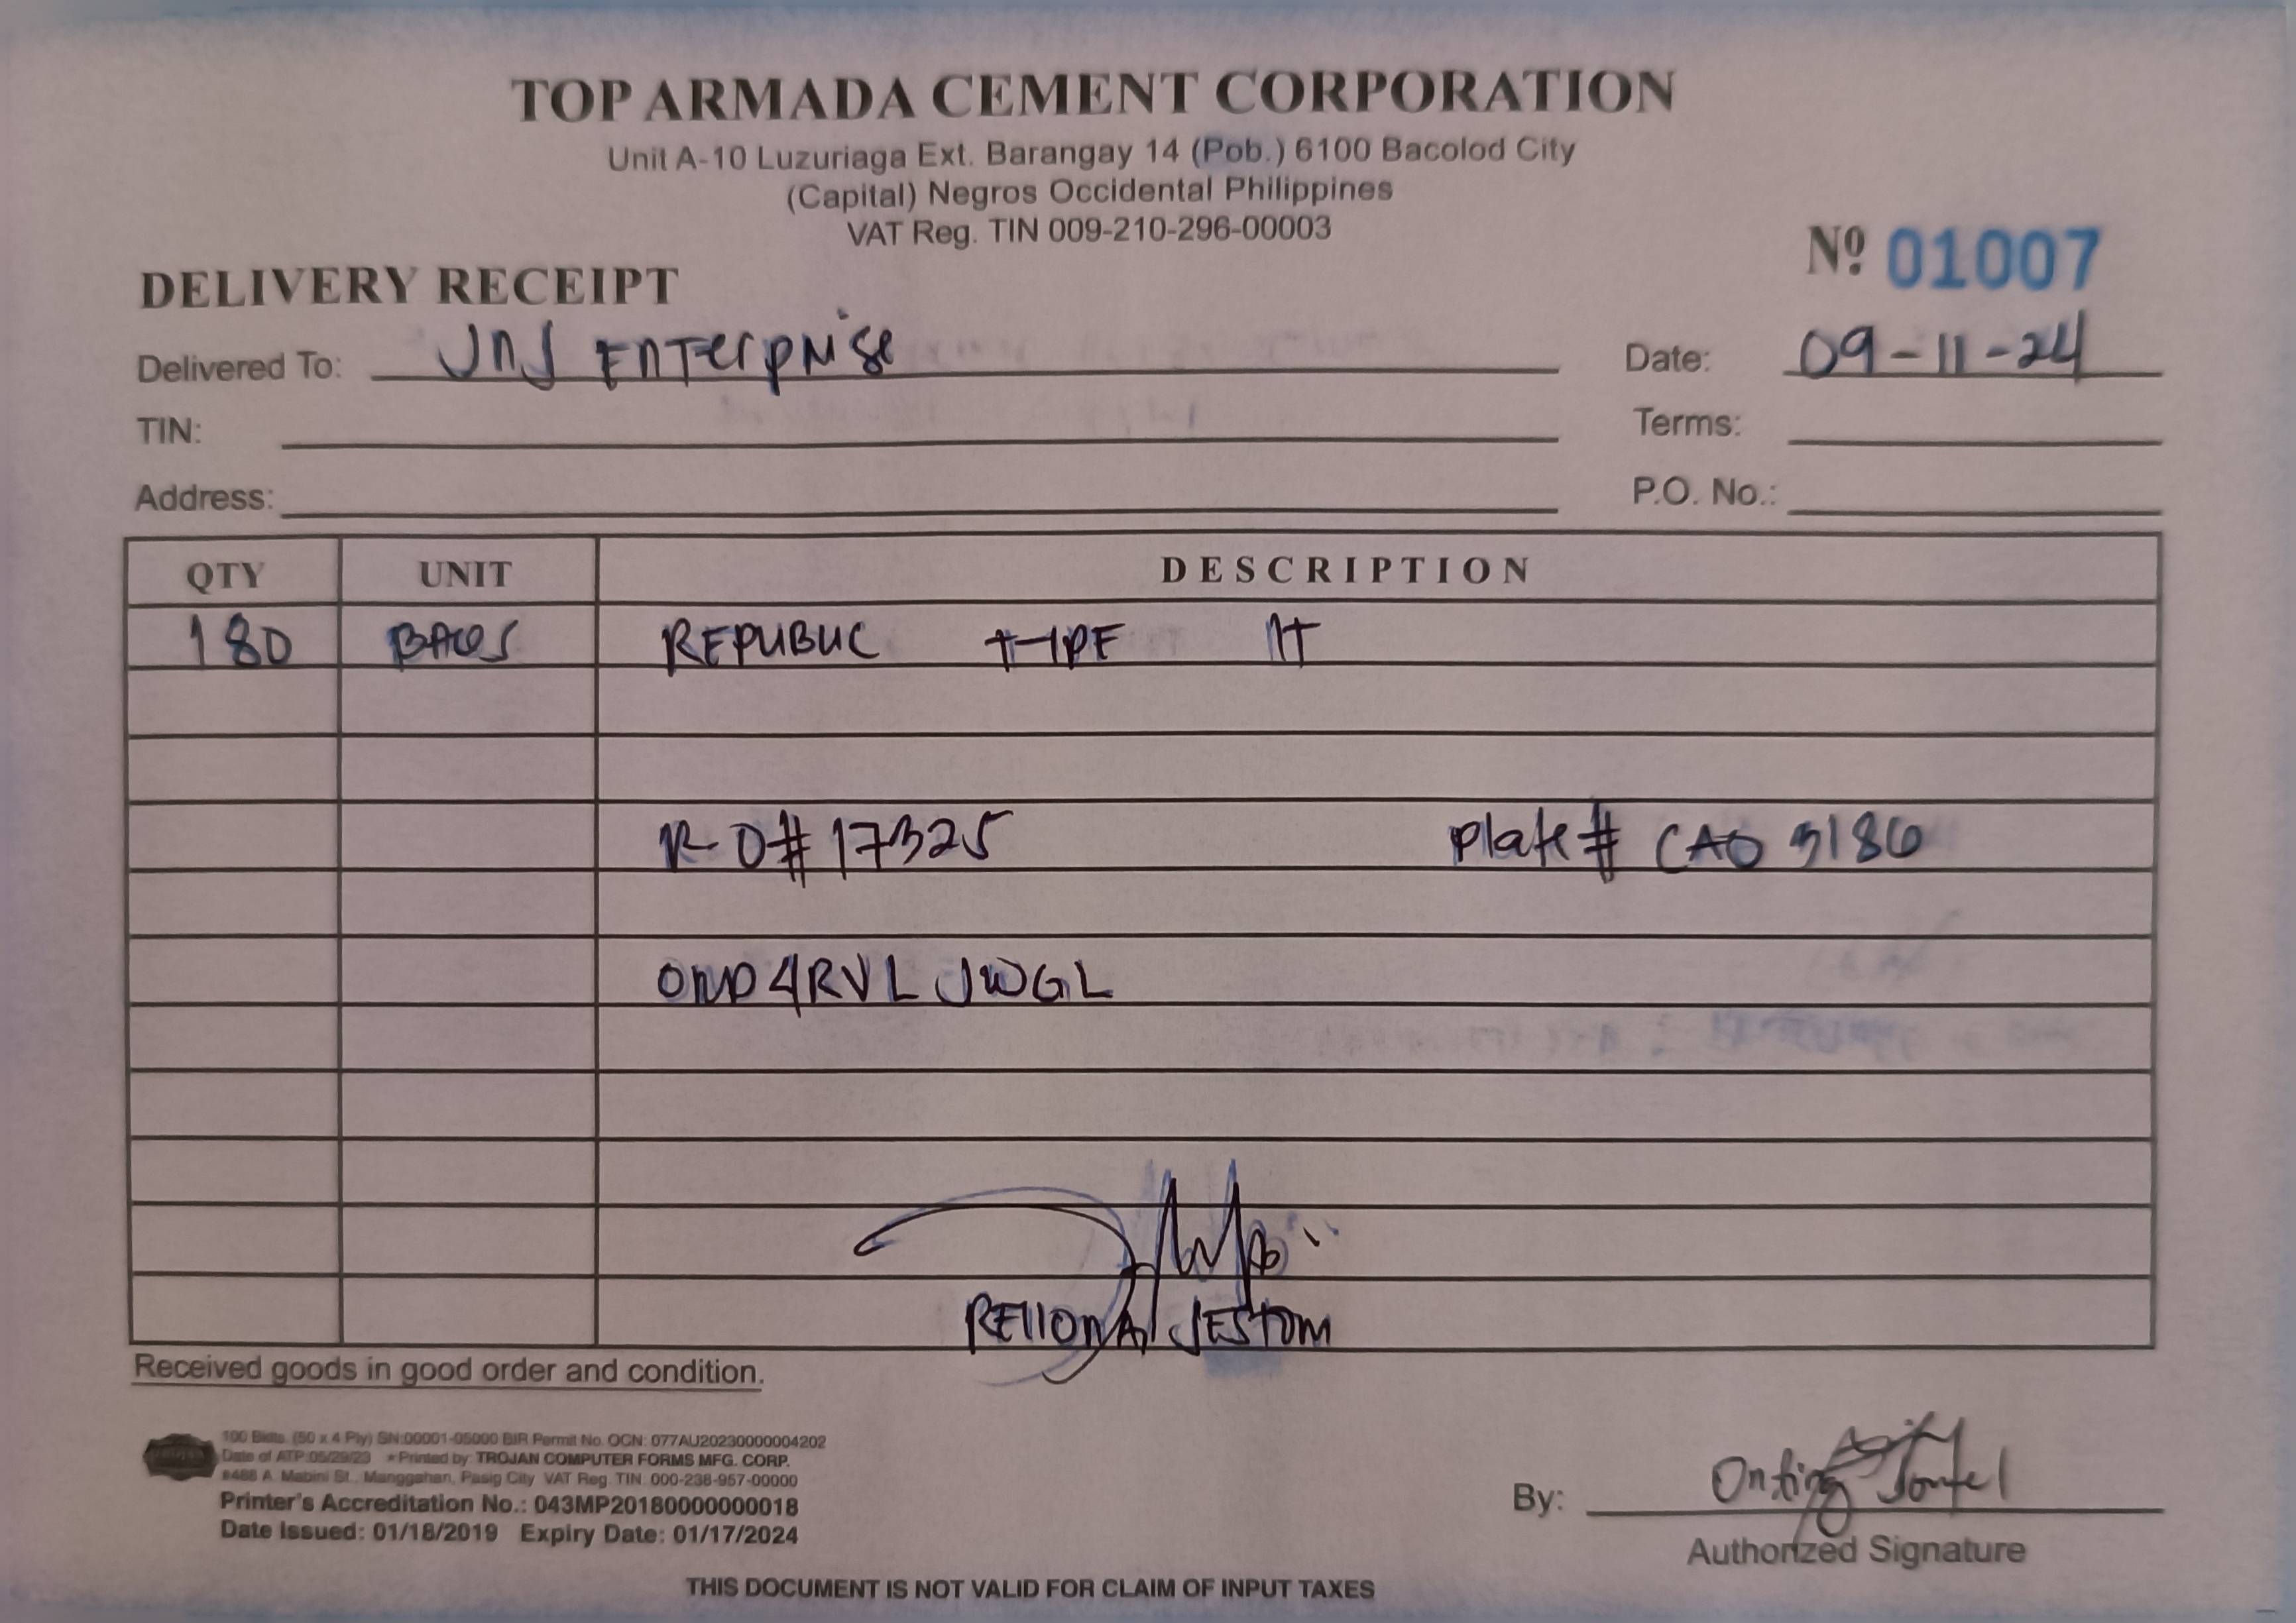 TOP ARMADA CEMENT CORPORATION
Unit A-10 Luzuriaga Ext. Barangay 14 (Pob.) 6100 Bacolod City
(Capital) Negros Occidental Philippines
VAT Reg. TIN 009-210-296-00003
Nº 01007
DELIVERY RECEIPT
Delivered To: JNJ ENTerprise Date: 09-11-24
TIN: Terms:
Address: P.O. No.:
QTY UNIT DESCRIPTION
180 BAGS REPUBLIC TYPE 1T
R-O# 17325 Plate# CAO 3186
OMD4RVL JWGL
JESTOM
Received goods in good order and condition.
100 Bklts. (50 x 4 Ply) SN:00001-05000 BIR Permit No. OCN: 077AU20230000004202
Date of ATP:05/29/23 *Printed by: TROJAN COMPUTER FORMS MFG. CORP.
#486 A. Mabini St., Manggahan, Pasig City VAT Reg. TIN: 000-238-957-00000
Printer's Accreditation No.: 043MP20180000000018
Date Issued: 01/18/2019 Expiry Date: 01/17/2024
By: Onting
Authorized Signature
THIS DOCUMENT IS NOT VALID FOR CLAIM OF INPUT TAXES